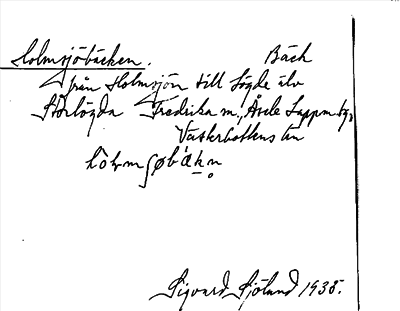 Holmsjöbäcken. Bäck
från Holmsjön till Lögde älv
Storlögda Fredrika sn., Åsele Lappm.
Västerbottens län
Sigvard Sjölund 1935.